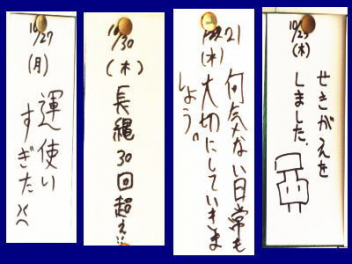 10/27
(月)
運使い
すぎた
10/30
(木)
長縄30回超え!!
21
(木)
何気ない日常も
大切にしていきま
しょう。
(木)
せきがえを
しました。